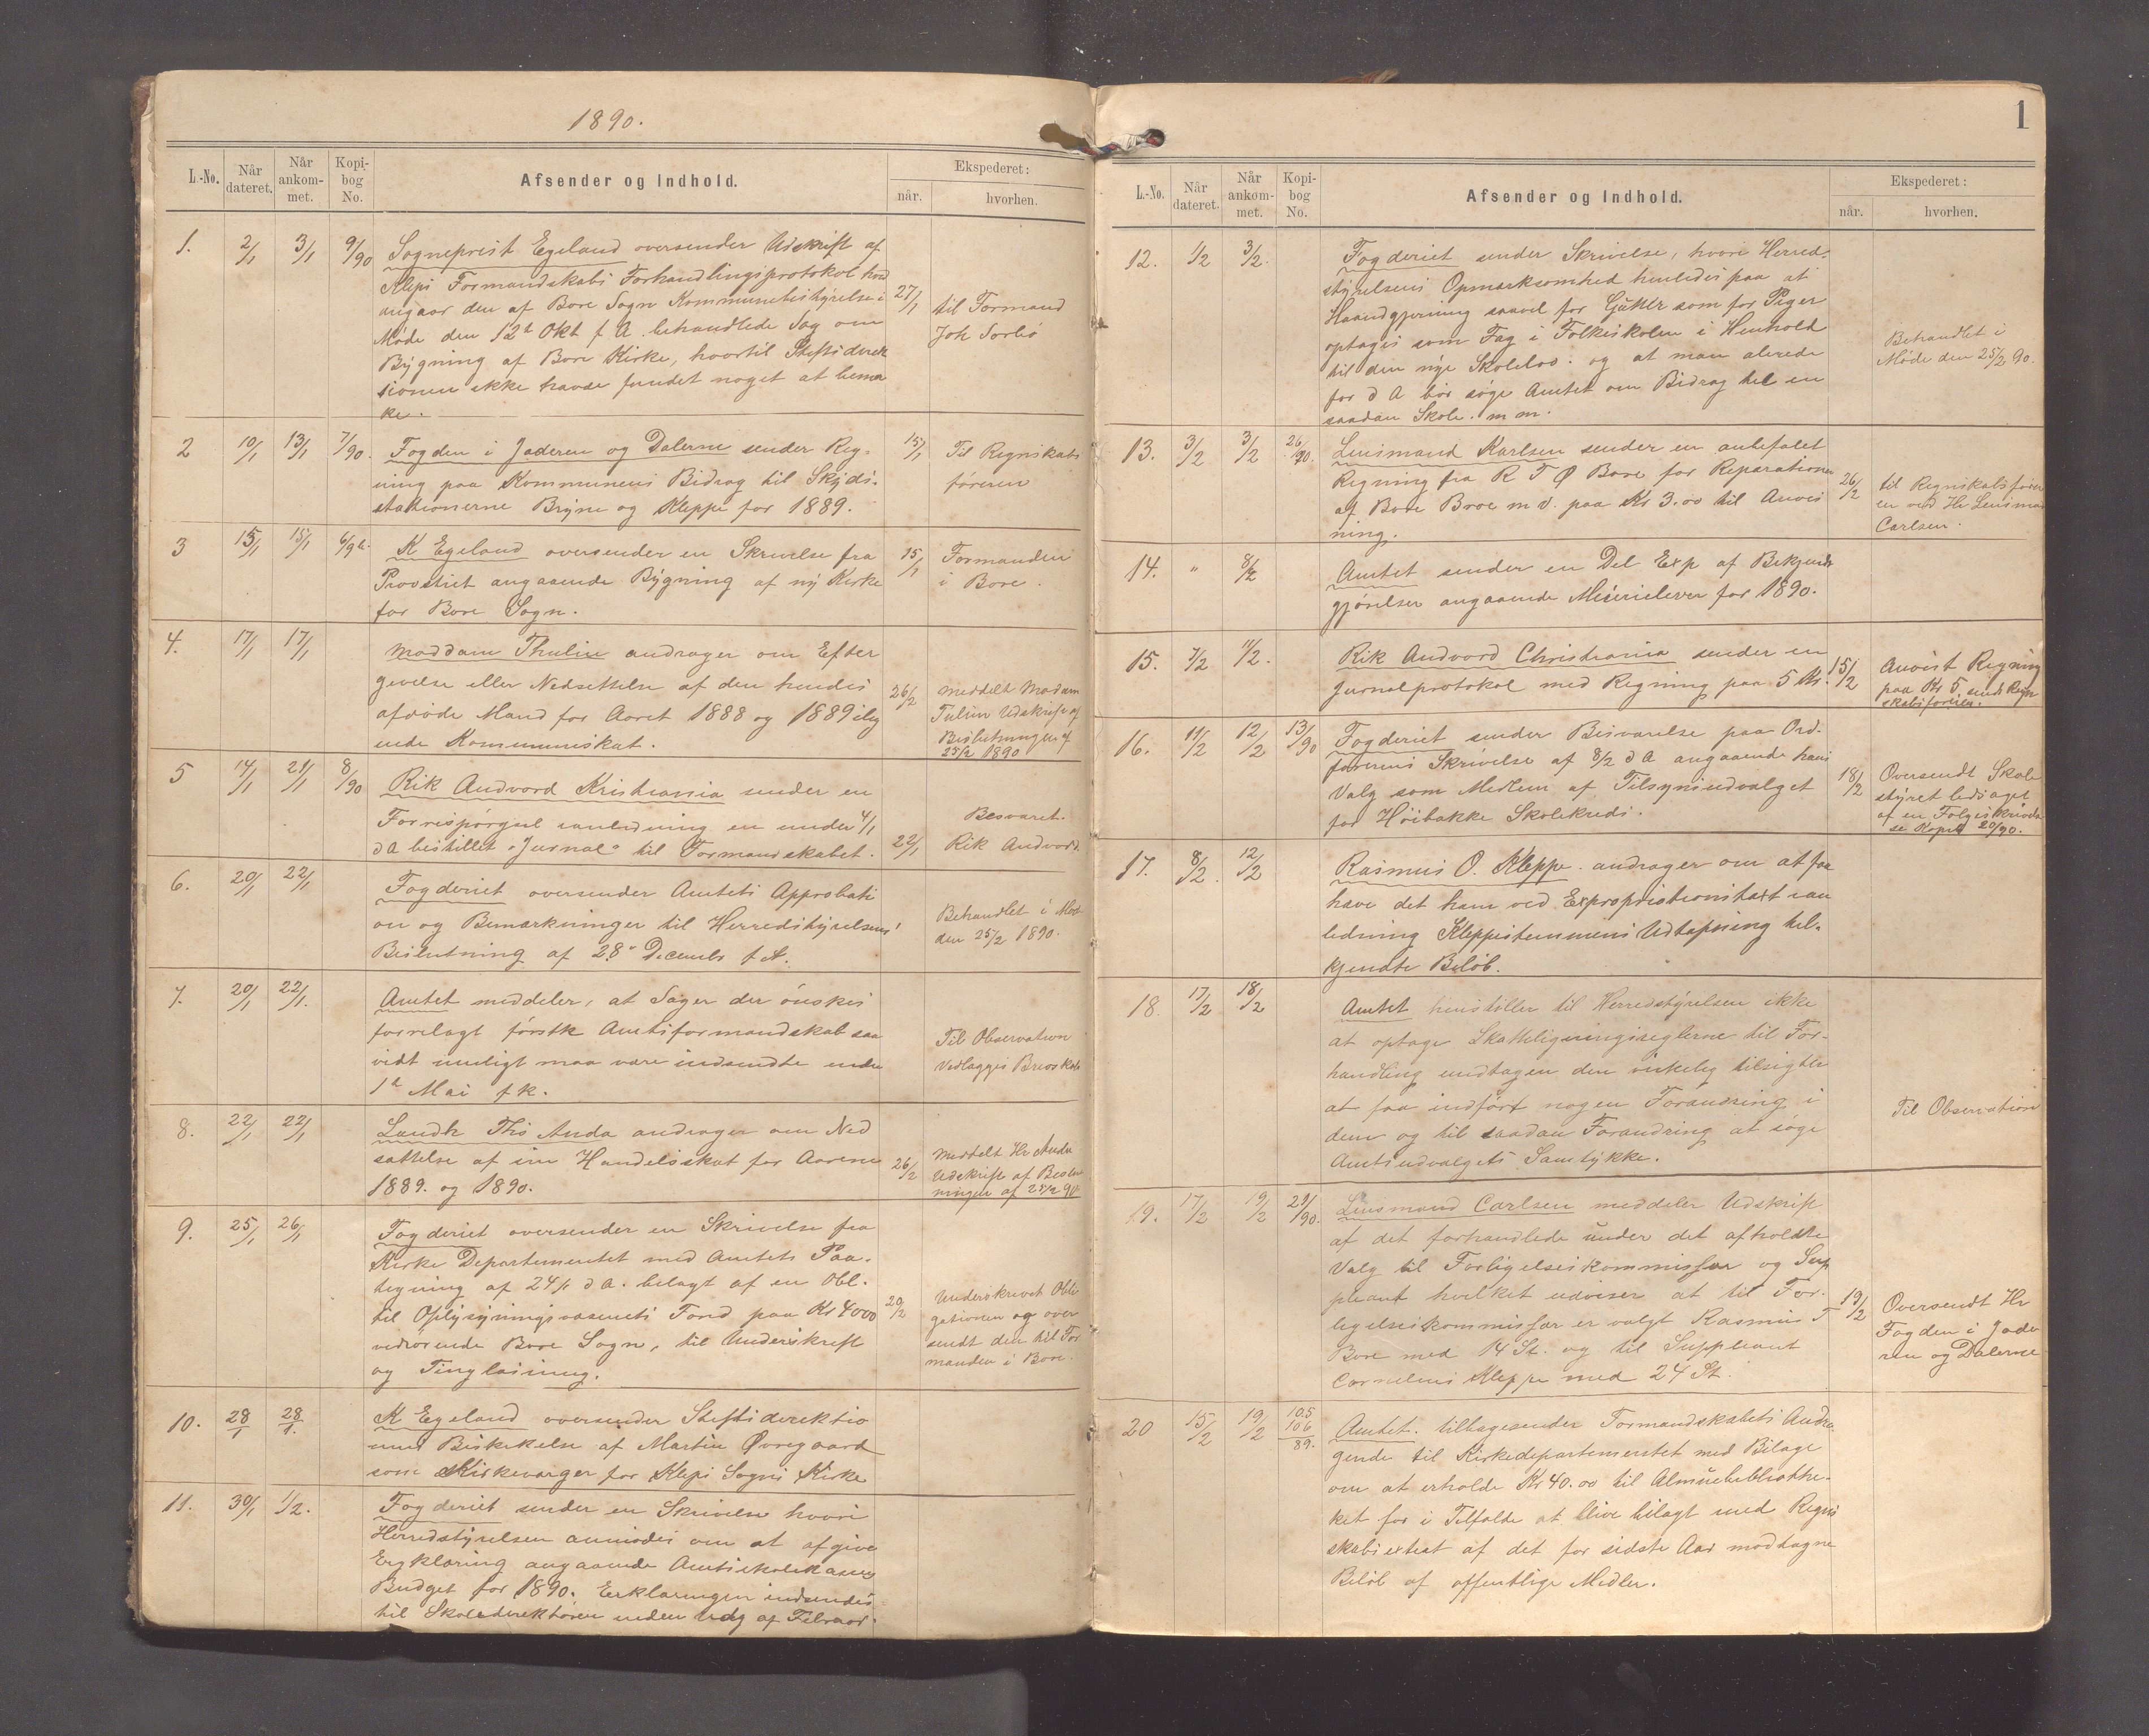 1890.
L.-No. Når dateret. Når ankommet. Kopibog No. Afsender og Indhold. Ekspederet: når. hvorhen.
1. 2/1 3/1 9/90 Sogneprest Egeland oversender Udskrift af
Kleps Formandskabs Forhandlingsprotokol hvad
angaar den af Bore Sogns Kommunebestyrelse i
Møde den 12te Okt f A. behandlede Sag om
Bygning af Bore Kirke, hvortil Stiftsdirek
sionen ikke havde fundet noget at bemær
ke.
27/1 til Formand
Joh Sorbø
2 10/1 13/1 7/90. Fogden i Jæderen og Dalerne sender Reg-
ning paa Kommunens Bidrag til Skyds-
stationerne Bryne og Kleppe for 1889.
15/1 Til Regnskabs
føreren
3 15/1 15/1 6/90. K Egeland oversender en Skrivelse fra
Provstiet angaaende Bygning af ny Kirke
for Bore Sogn.
15/1 Formanden
i Bore.
4. 17/1 17/1 Maddam Thulin andrager om Efter
givelse eller Nedsettelse af den hendes
afdøde Mand for Aaret 1888 og 1889 ilig
nede Kommuneskat.
26/2 meddelt Madam
Tulin Udskrift af
Beslutningen af
25/2 1890
5 14/1 21/1 8/90 Rik Andvord Kristiania sender en
Forrespørgsel i anledning en under 4/1
d A bestillet "Jurnal" til Formandskabet.
22/1 Besvaret.
Rik Andvord
6. 20/1 22/1 Fogderiet oversender Amtets Approbati
on og Bemærkninger til Herredstyrelsens
Beslutning af 28de Decembr f A.
Behandlet i Møde
den 25/2 1890.
7. 20/1 22/1. Amtet meddeler, at Sager der ønskes
forrelagt førstk Amtsformandskab saa
vidt muligt maa være indsendte inden
1te Mai f k.
Til Observation
Vedlægges
8. 22/1 22/1 Landh Ths Anda andrager om Ned
sættelse af sin Handelsskat for Aarene
1889. og 1890.
26/2 meddelt Hr Anda
Udskrift af Beslut
ningen af 25/2 90
9. 25/1 26/1 Fogderiet oversender en Skrivelse fra
Kirke Departementet med Amtets Paa-
tegning af 24/1 d A. belagt af en Obl.
til Oplysningsvæsenets Fond paa Kr 4000
vedrørende Bore Sogn, til Underskrift
og Tinglæsning.
20/2 Underskrevet Obli
gationen og over
sendt den til For
manden i Bore.
10. 28/1 28/1. K Egeland oversender Stiftsdirektio
nens Beskikkelse af Martin Øvregaard
som Kirkeværger for Kleps Sogns Kirke
11. 30/1 1/2. Fogderiet sender en Skrivelse hvori
Herredstyrelsen anmodes om at afgive
Ergklæring angaaende Amtsskolekassens
Budget for 1890. Erklæringen indsendes
til Skoledirektøren inden Udg af Februar.
1
L.-No. Når dateret. Når ankommet. Kopibog No. Afsender og Indhold. Ekspederet: når. hvorhen.
12. 1/2 3/2. Fogderiet sender Skrivelse, hvori Herred-
styrelsens Opmærksomhed henledes paa at
Haandgjerning saavel for Gutter som for Piger
optages som Fag i Folkeskolen i Henhold
til den nye Skolelov. og at man alerede
for d A bør søge Amtet om Bidrag til en
saadan Skole. m m.
Behandlet i
Møde den 25/2 90.
13. 3/2 3/2 26/90. Lensmand Karlsen sender en anbefalet
Regning fra R T Ø Bore for Reparationen
af Bore Broe m v. paa Kr 3.00 til Anvis
ning.
26/2 til Regnskabsfører
en ved Hr Lensmand
Carlsen.
14. " 8/2 Amtet sender en Del Exp af Bekjendt
gjørelser angaaende Meierielever for 1890.
15. 7/2 11/2. Rik Andvord Christiania sender en
Jurnalprotokol med Regning paa 5 Kr.
15/2 Anvist Regning
paa Kr 5. sendt Regn
skabsføreren.
16. 11/2 12/2 13/90 Fogderiet sender Besvarelse paa Ord-
førerens Skrivelse af 8/2 d A angaaende hans
Valg som Medlem af Tilsynsudvalget
for Høibakke Skolekreds.
18/2 Oversendt Skole
styret ledsaget
af en Følgeskrivel
se Kopi 20/90.
17. 8/2. 12/2 Rasmus O. Kleppe. andrager om at faa
have det ham ved Expropriationstakst i an
ledning Kleppestemmens Udtapning til-
kjendte Beløb.
18. 17/2 18/2 Amtet henstiller til Herredstyrelsen ikke
at optage Skatteligningsreglerne til For-
handling undtagen den virkelig tilsigter
at faa indført nogen Forandring i
dem og til saadan Forandring at søge
Amtsudvalgets Samtykke.
Til Observation
19. 17/2 19/2 21/90. Lensmand Carlsen meddeler Udskrift
af det forhandlede under det afholdte
Valg til Forligelseskommissær og Sup
pleant hvilket udviser at til For-
ligelseskommissær er valgt Rasmus T
Bore med 14 St. og til Suppleant
Cornelius Kleppe med 24 St.
19/2 Oversendt Hr
Fogden i Jæde
ren og Dalerne
20 15/2 19/2 105 106/89. Amtet. tilbagesender Formandskabets Andra-
gende til Kirkedepartementet med Bilage
om at erholde Kr 40.00 til Almuebibliothe-
ket for i Tilfælde at blive bilagt med Regn
skabsextrat af det for sidste Aar modtagne
Beløb af offentlige Midler.